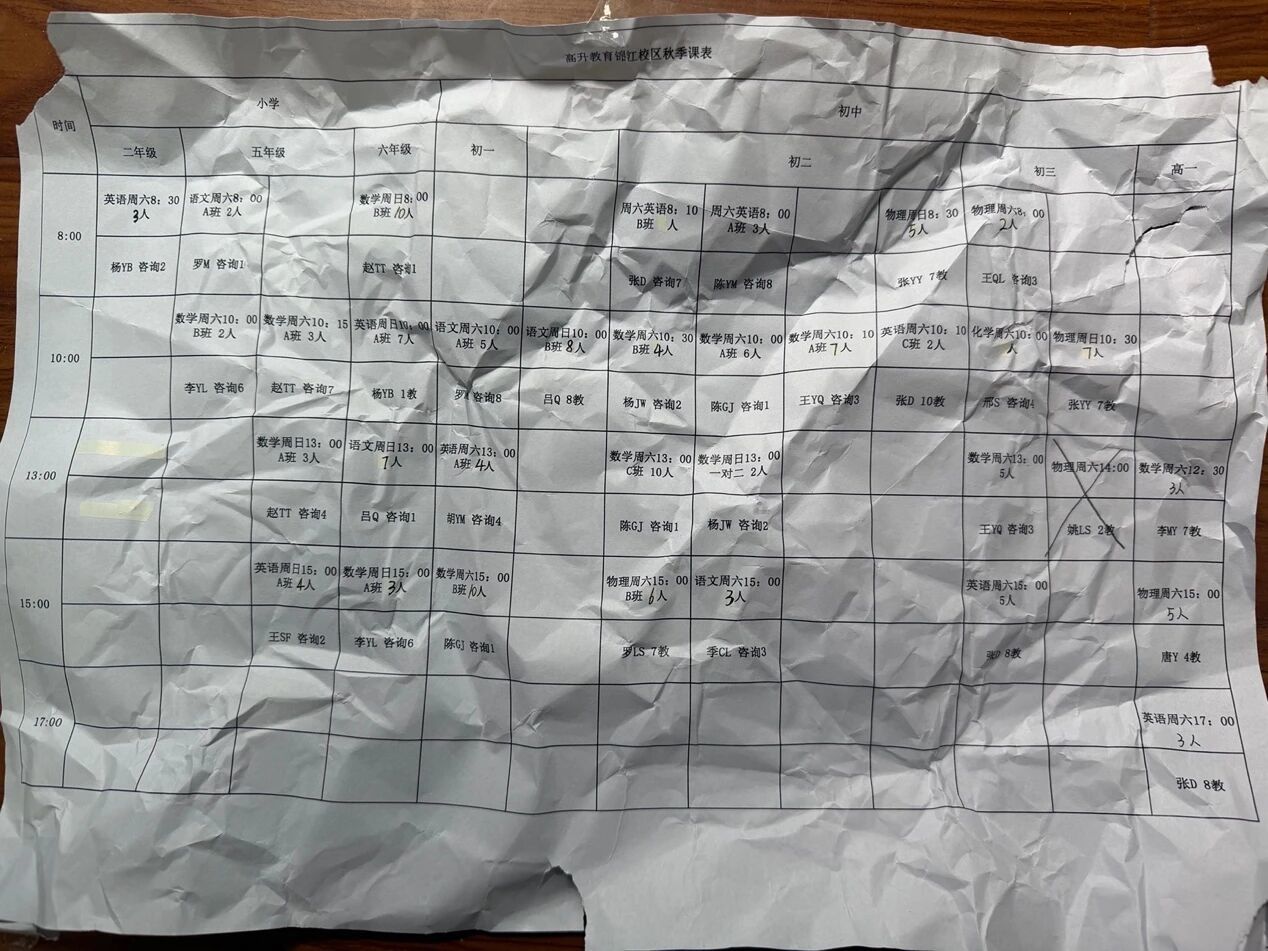 高升教育锦江校区秋季课表
时间 小学 初中
二年级 五年级 六年级 初一 初二 初三 高一
8:00
英语周六8：30 语文周六8：00 数学周日8：00 周六英语8：10 周六英语8：00 物理周日8：30 物理周六8：00
3人 A班 2人 B班 10人 B班 人 A班 3人 5人 2人
杨YB 咨询2 罗M 咨询1 赵TT 咨询1 张D 咨询7 陈YM 咨询8 张YY 7教 王QL 咨询3
10:00
数学周六10：00 数学周六10：15 英语周日10：00 语文周六10：00 语文周日10：00 数学周六10：30 数学周六10：00 数学周六10：10 英语周六10：10 化学周六10：00 物理周日10：30
B班 2人 A班 3人 A班 7人 A班 5人 B班 8人 B班 4人 A班 6人 A班 7人 C班 2人 人 7人
李YL 咨询6 赵TT 咨询7 杨YB 1教 罗M 咨询8 吕Q 8教 杨JW 咨询2 陈GJ 咨询1 王YQ 咨询3 张D 10教 邢S 咨询4 张YY 7教
13:00
数学周日13：00 语文周日13：00 英语周六13：00 数学周六13：00 数学周日13：00 数学周六13：00 物理周六14:00 数学周六12：30
A班 3人 7人 A班 4人 C班 10人 一对二 2人 5人 3人
赵TT 咨询4 吕Q 咨询1 胡YM 咨询4 陈GJ 咨询1 杨JW 咨询2 王YQ 咨询3 姚LS 2教 李MY 7教
15:00
英语周日15：00 数学周日15：00 数学周六15：00 物理周六15：00 语文周六15：00 英语周六15：00 物理周六15：00
A班 4人 A班 3人 B班 10人 B班 6人 3人 5人 5人
王SF 咨询2 李YL 咨询6 陈GJ 咨询1 罗LS 7教 季CL 咨询3 张D 8教 唐Y 4教
17:00
英语周六17：00
3人
张D 8教